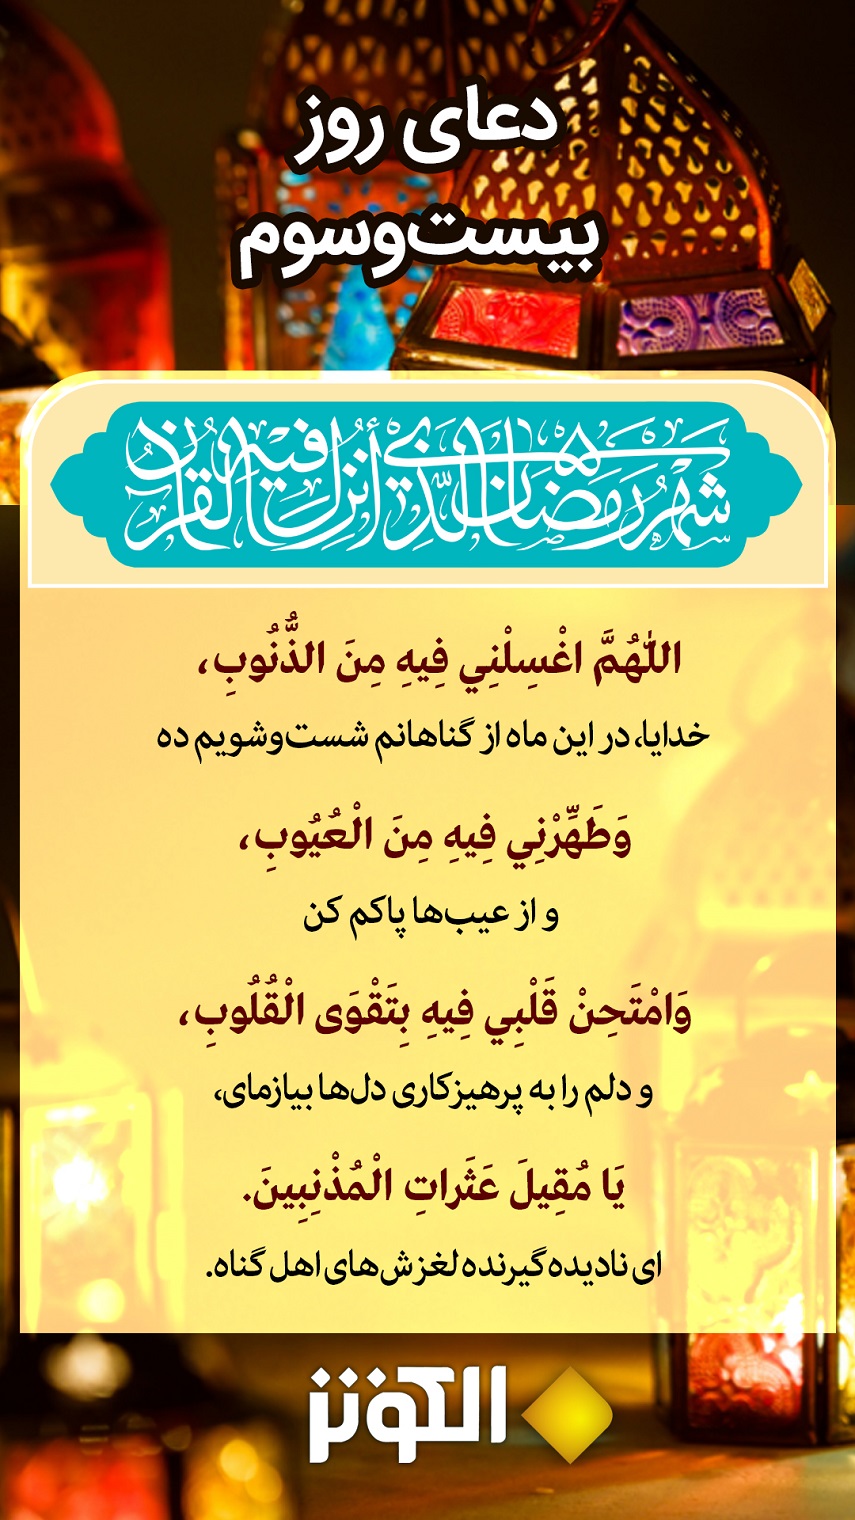 دعای روز
بیست‌وسوم
شهر رمضان الذي أنزل فيه القرآن
اللّٰهُمَّ اغْسِلْنِي فِيهِ مِنَ الذُّنُوبِ،
خدایا، در این ماه از گناهانم شست‌وشویم ده
وَطَهِّرْنِي فِيهِ مِنَ الْعُيُوبِ،
و از عیب‌ها پاکم کن
وَامْتَحِنْ قَلْبِي فِيهِ بِتَقْوَى الْقُلُوبِ،
و دلم را به پرهیزکاری دل‌ها بیازمای،
يَا مُقِيلَ عَثَراتِ الْمُذْنِبِينَ.
ای نادیده‌گیرنده لغزش‌های اهل گناه.
الکوثر